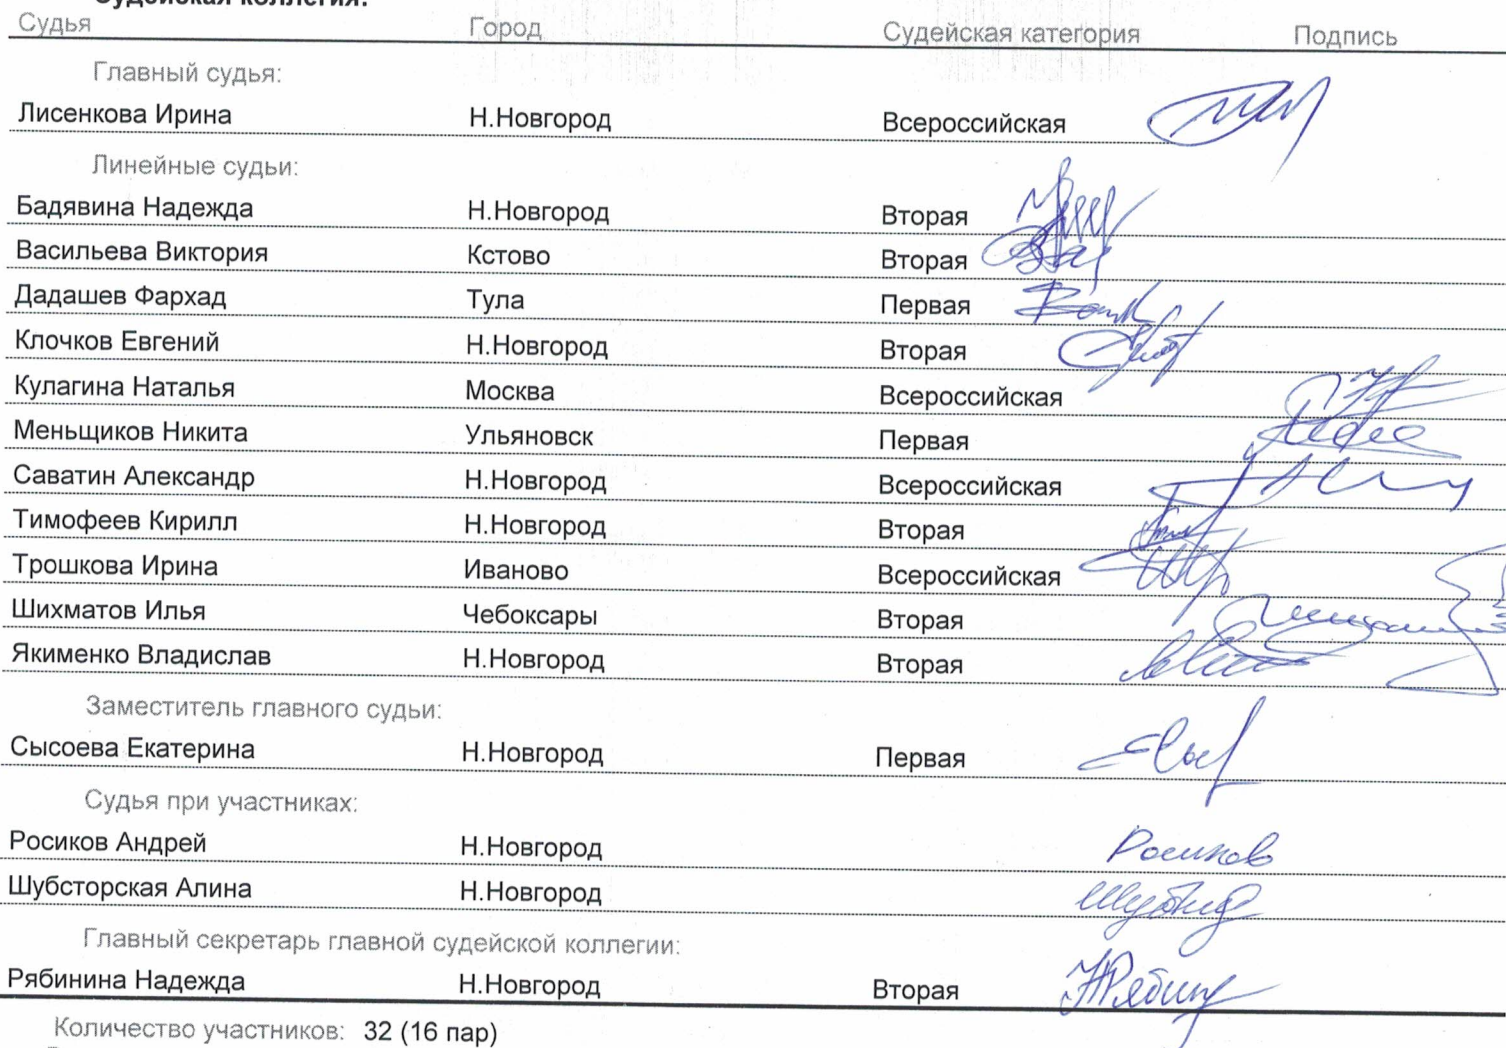 Судейская коллегия:
Судья Город Судейская категория Подпись
Главный судья:
Лисенкова Ирина Н.Новгород Всероссийская
Линейные судьи:
Бадявина Надежда Н.Новгород Вторая
Васильева Виктория Кстово Вторая
Дадашев Фархад Тула Первая
Клочков Евгений Н.Новгород Вторая
Кулагина Наталья Москва Всероссийская
Меньщиков Никита Ульяновск Первая
Саватин Александр Н.Новгород Всероссийская
Тимофеев Кирилл Н.Новгород Вторая
Трошкова Ирина Иваново Всероссийская
Шихматов Илья Чебоксары Вторая
Якименко Владислав Н.Новгород Вторая
Заместитель главного судьи:
Сысоева Екатерина Н.Новгород Первая
Судья при участниках:
Росиков Андрей Н.Новгород Росиков
Шубсторская Алина Н.Новгород
Главный секретарь главной судейской коллегии:
Рябинина Надежда Н.Новгород Вторая
Количество участников: 32 (16 пар)